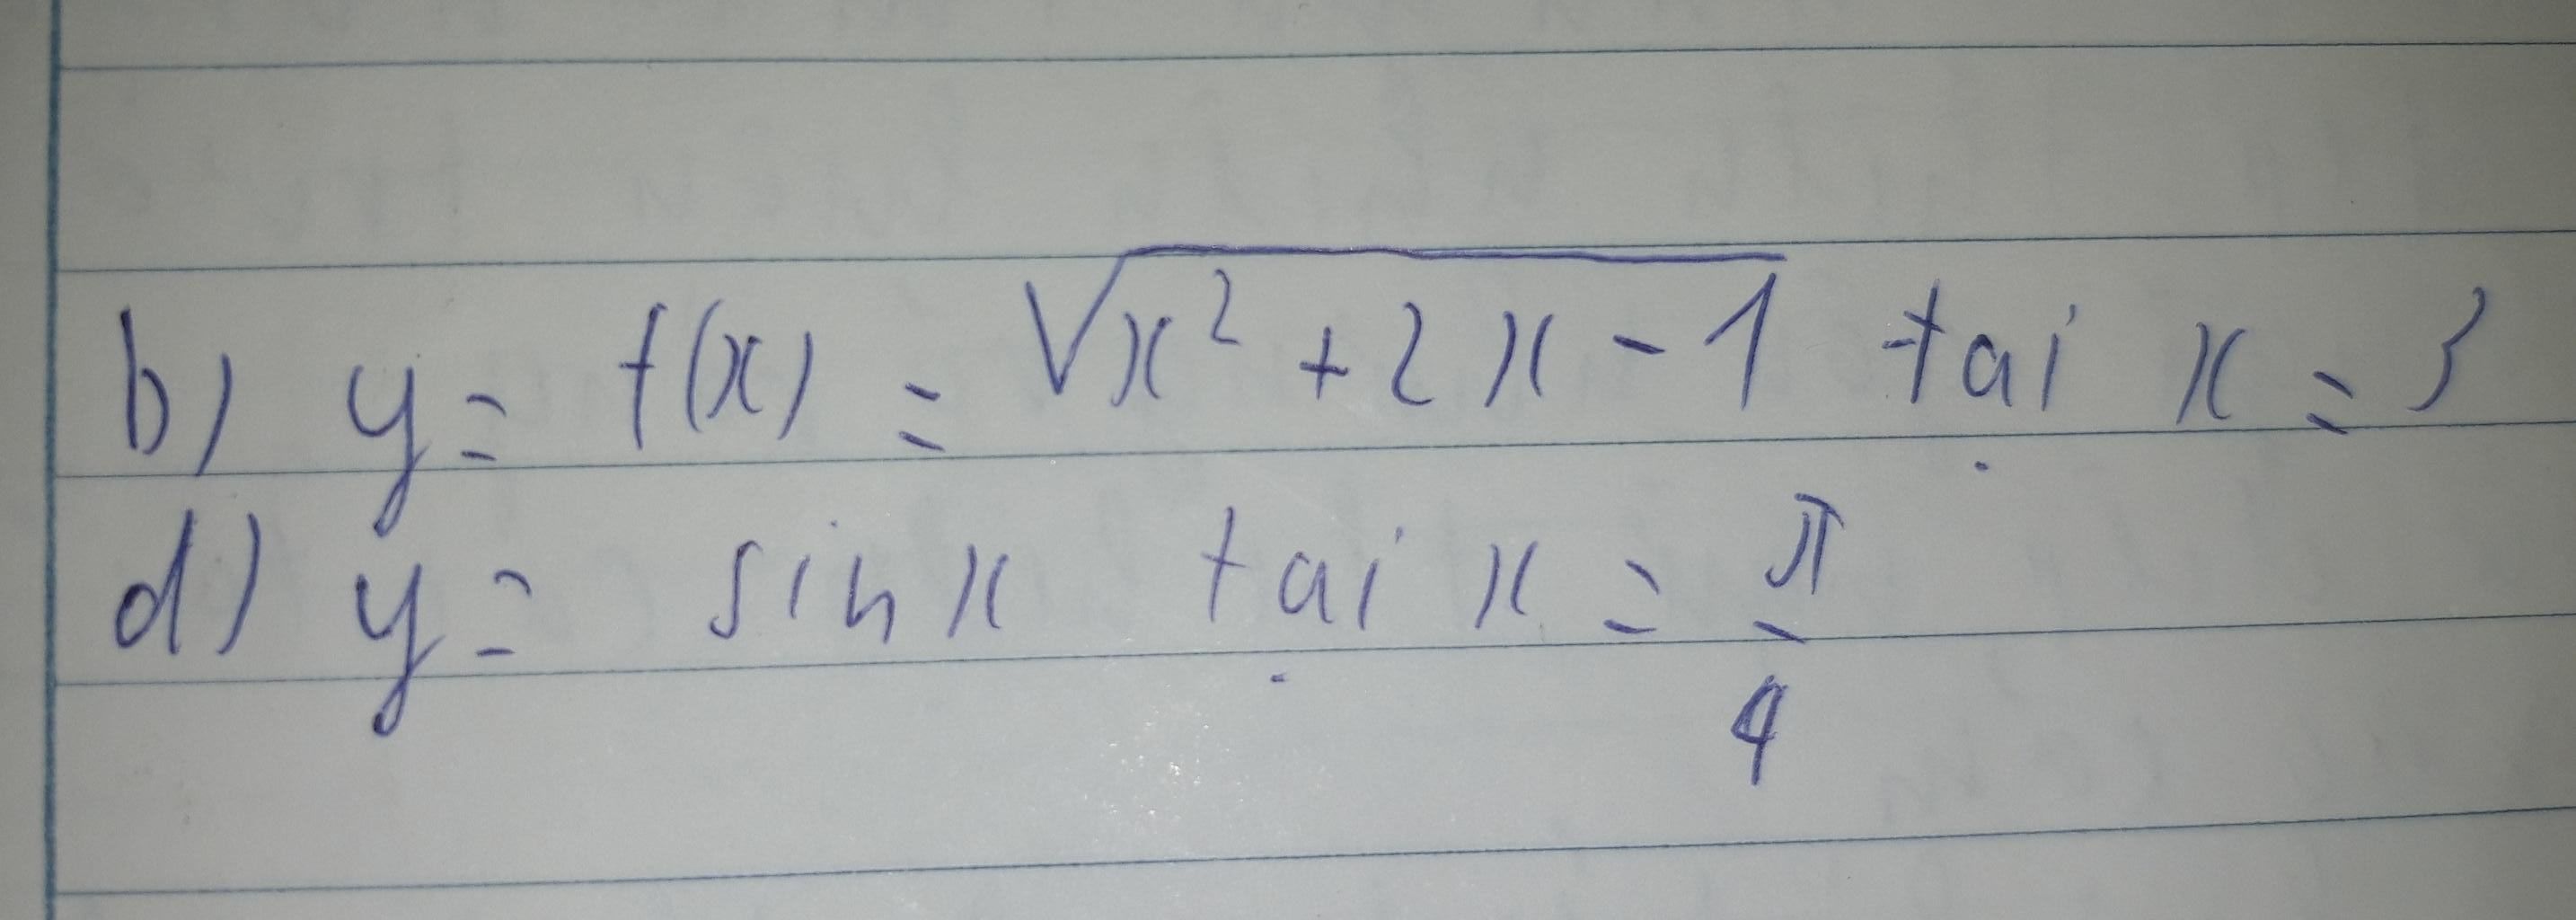 b) y = f(x) = √(x² + 2x - 1) tại x = 3
d) y = sin x tại x = π/4